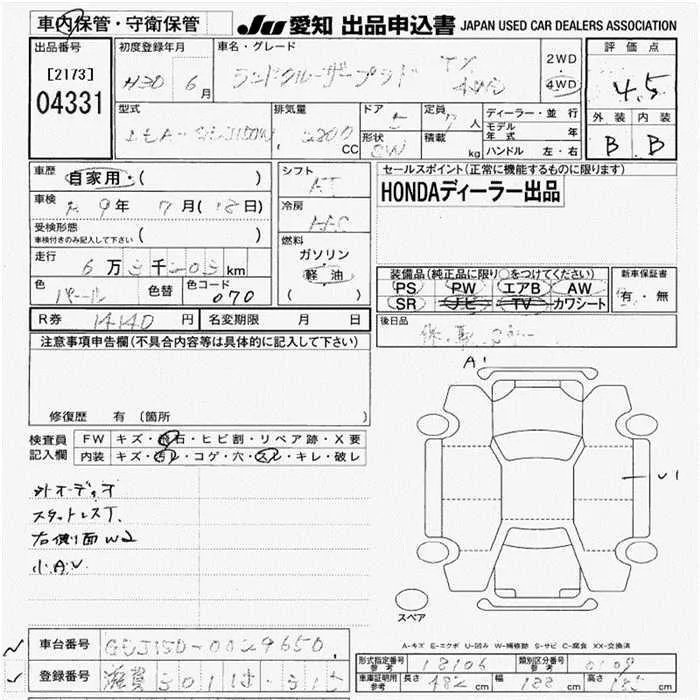 車内保管・守衛保管
JU 愛知 出品申込書 JAPAN USED CAR DEALERS ASSOCIATION
出品番号
[2173]
04331
初度登録年月
H30 6月
車名・グレード
ランドクルーザープラド TX
2WD
4WD
評価点
4.5
外装 内装
B B
型式
排気量
2800 CC
ドア 5
形状 SW
定員 7人
積載 kg
ディーラー・並行
モデル年式 年
ハンドル 左・右
車歴
自家用・( )
車検
R9年 7月(18日)
受検形態
車検付きのみ記入して下さい ( )
走行
6万3千203km
色
パール
色替
色コード
070
シフト
AT
冷房
AAC
燃料
ガソリン
軽油
( )
セールスポイント(正常に機能するものに限ります)
HONDAディーラー出品
装備品(純正品に限り○をつけてください)
PS PW エアB AW
SR ナビ TV カワシート
新車保証書
有・無
後日品
R券 14140円
名変期限 月 日
注意事項申告欄(不具合内容等は具体的に記入して下さい)
修復歴 有(箇所
検査員記入欄
FW キズ・飛石・ヒビ割・リペア跡・X要
内装 キズ・汚レ・コゲ・穴・スレ・キレ・破レ
外オーディオ
スタットレスT.
右側面W2
小A.U.
A1
U1
スペア
A-キズ E-エクボ U-凹み W-補修跡 S-サビ C-腐食 XX-交換済
車台番号 GDJ150-0029650
登録番号 滋賀 301
形式指定番号 参考 18106
類別区分番号 参考
車庫証明用 参考 長さ 482cm 幅 188cm 高さ 185cm